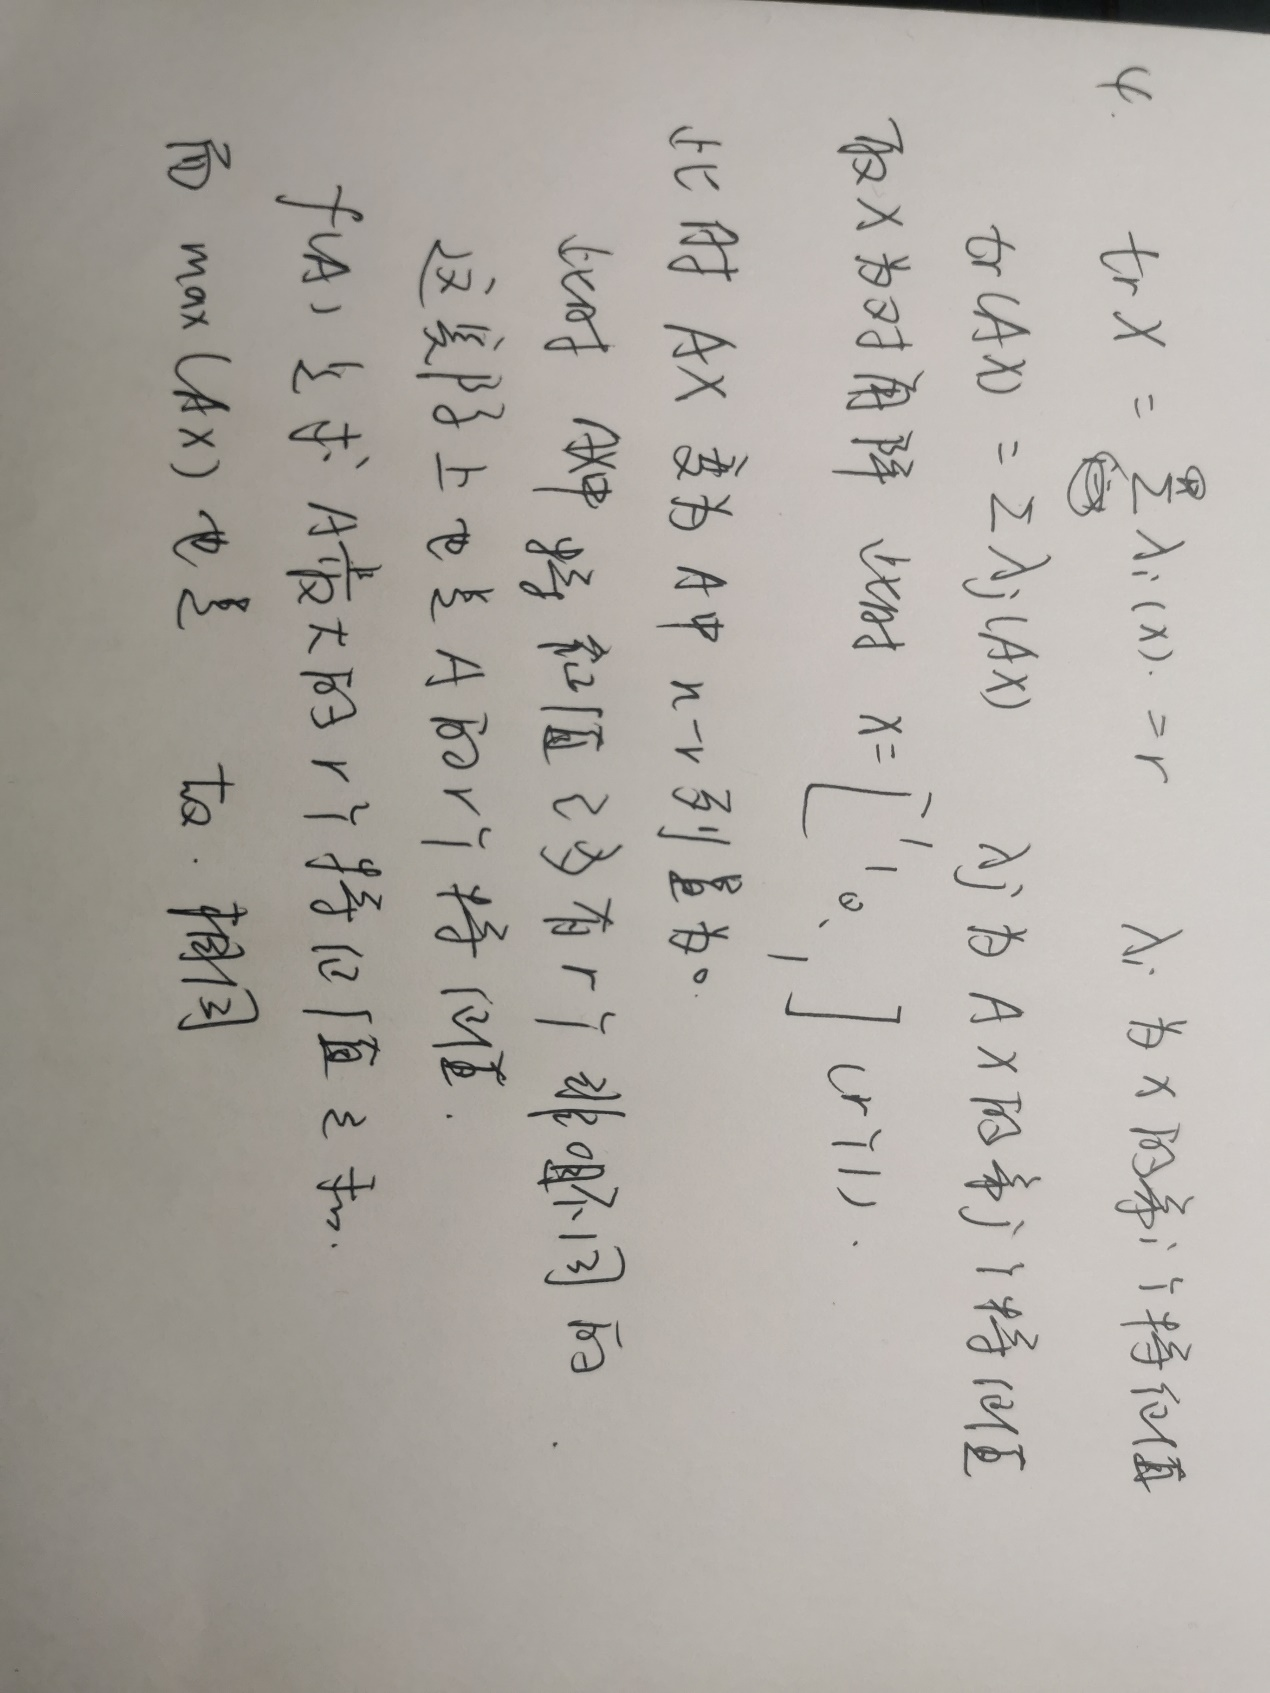 4.
trX = Σλi(x). = r λi 为X的第i个特征值
tr(AX) = Σλj(AX) λj为AX的第j个特征值
取X为对角阵 此时 X=[1 1 0 1] (r个1).
此时 AX 变为A中 n-r列置为0
此时 AX中特征值之多有r个非0且不同的
这实际上也是A的r个特征值.
f(A) 是求A最大的r个特征值之和.
而 max(AX)也是 to. 相同